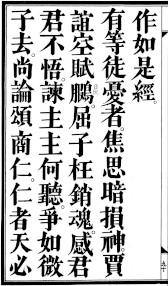 作如是經。
有等徒憂者。焦思暗損神。賈
誼空賦鵩。屈子枉銷魂。感君
君不悟。諫主主何聽。爭如微
子去。尚論頌商仁。仁者天必